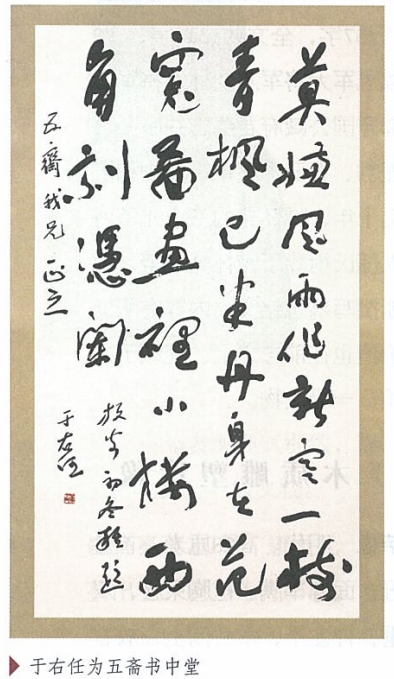 莫嫌風雨作新寒一樹
青楓已半丹身在范
寬圖畫裡小樓西
角剩憑闌
放翁初冬雜題
五齋我兄 正之
于右任
于右任为五斋书中堂